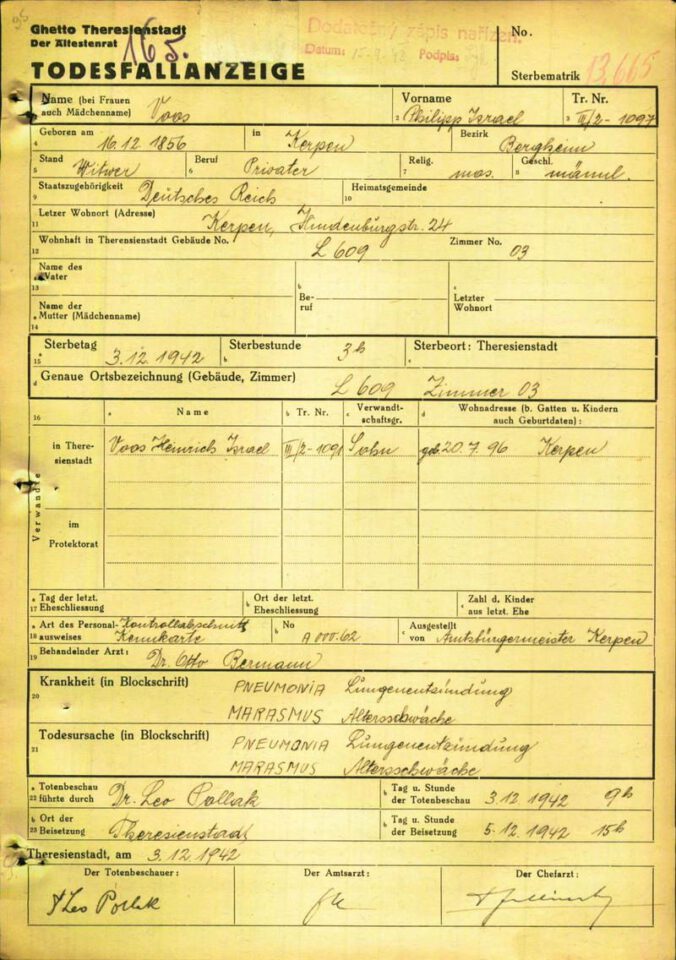 95
Ghetto Theresienstadt
Der Ältestenrat
165.
Dodatečný zápis nařízen.
Datum: 15.9.48 Podpis:
No.
TODESFALLANZEIGE
Sterbematrik 13,665
Name (bei Frauen auch Mädchenname) Voos
Vorname Philipp Israel
Tr. Nr. III/2-1097
Geboren am 16.12 1856 in Kerpen Bezirk Bergheim
Stand Witwer Beruf Privater Relig. mos. Geschl. männl.
Staatszugehörigkeit Deutsches Reich Heimatsgemeinde
Letzer Wohnort (Adresse) Kerpen, Hindenburgstr. 24
Wohnhaft in Theresienstadt Gebäude No. L 609 Zimmer No. 03
Name des Vater
Beruf
Letzter Wohnort
Name der Mutter (Mädchenname)
Sterbetag 3.12.1942 Sterbestunde 3h Sterbeort: Theresienstadt
Genaue Ortsbezeichnung (Gebäude, Zimmer) L 609 Zimmer 03
Name Tr. Nr. Verwandtschaftsgr. Wohnadresse (b. Gatten u. Kindern auch Geburtdaten):
Verwandte
in Theresienstadt Voos Heinrich Israel III/2-109 Sohn geb. 20.7.96 Kerpen
im Protektorat
Tag der letzt. Eheschliessung
Ort der letzt. Eheschliessung
Zahl d. Kinder aus letzt. Ehe
Art des Personalausweises Kontrollabschnitt Kennkarte No A 000.62 Ausgestellt von Amtsbürgermeister Kerpen
Behandelnder Arzt: Dr. Otto Bermann
Krankheit (in Blockschrift) PNEUMONIA Lungenentzündung
MARASMUS Altersschwäche
Todesursache (in Blockschrift) PNEUMONIA Lungenentzündung
MARASMUS Altersschwäche
Totenbeschau führte durch Dr. Leo Pollak Tag u. Stunde der Totenbeschau 3.12.1942 9h
Ort der Beisetzung Theresienstadt Tag u. Stunde der Beisetzung 5.12.1942 15h
Theresienstadt, am 3.12.1942
Der Totenbeschauer: Der Amtsarzt: Der Chefarzt:
Leo Pollak